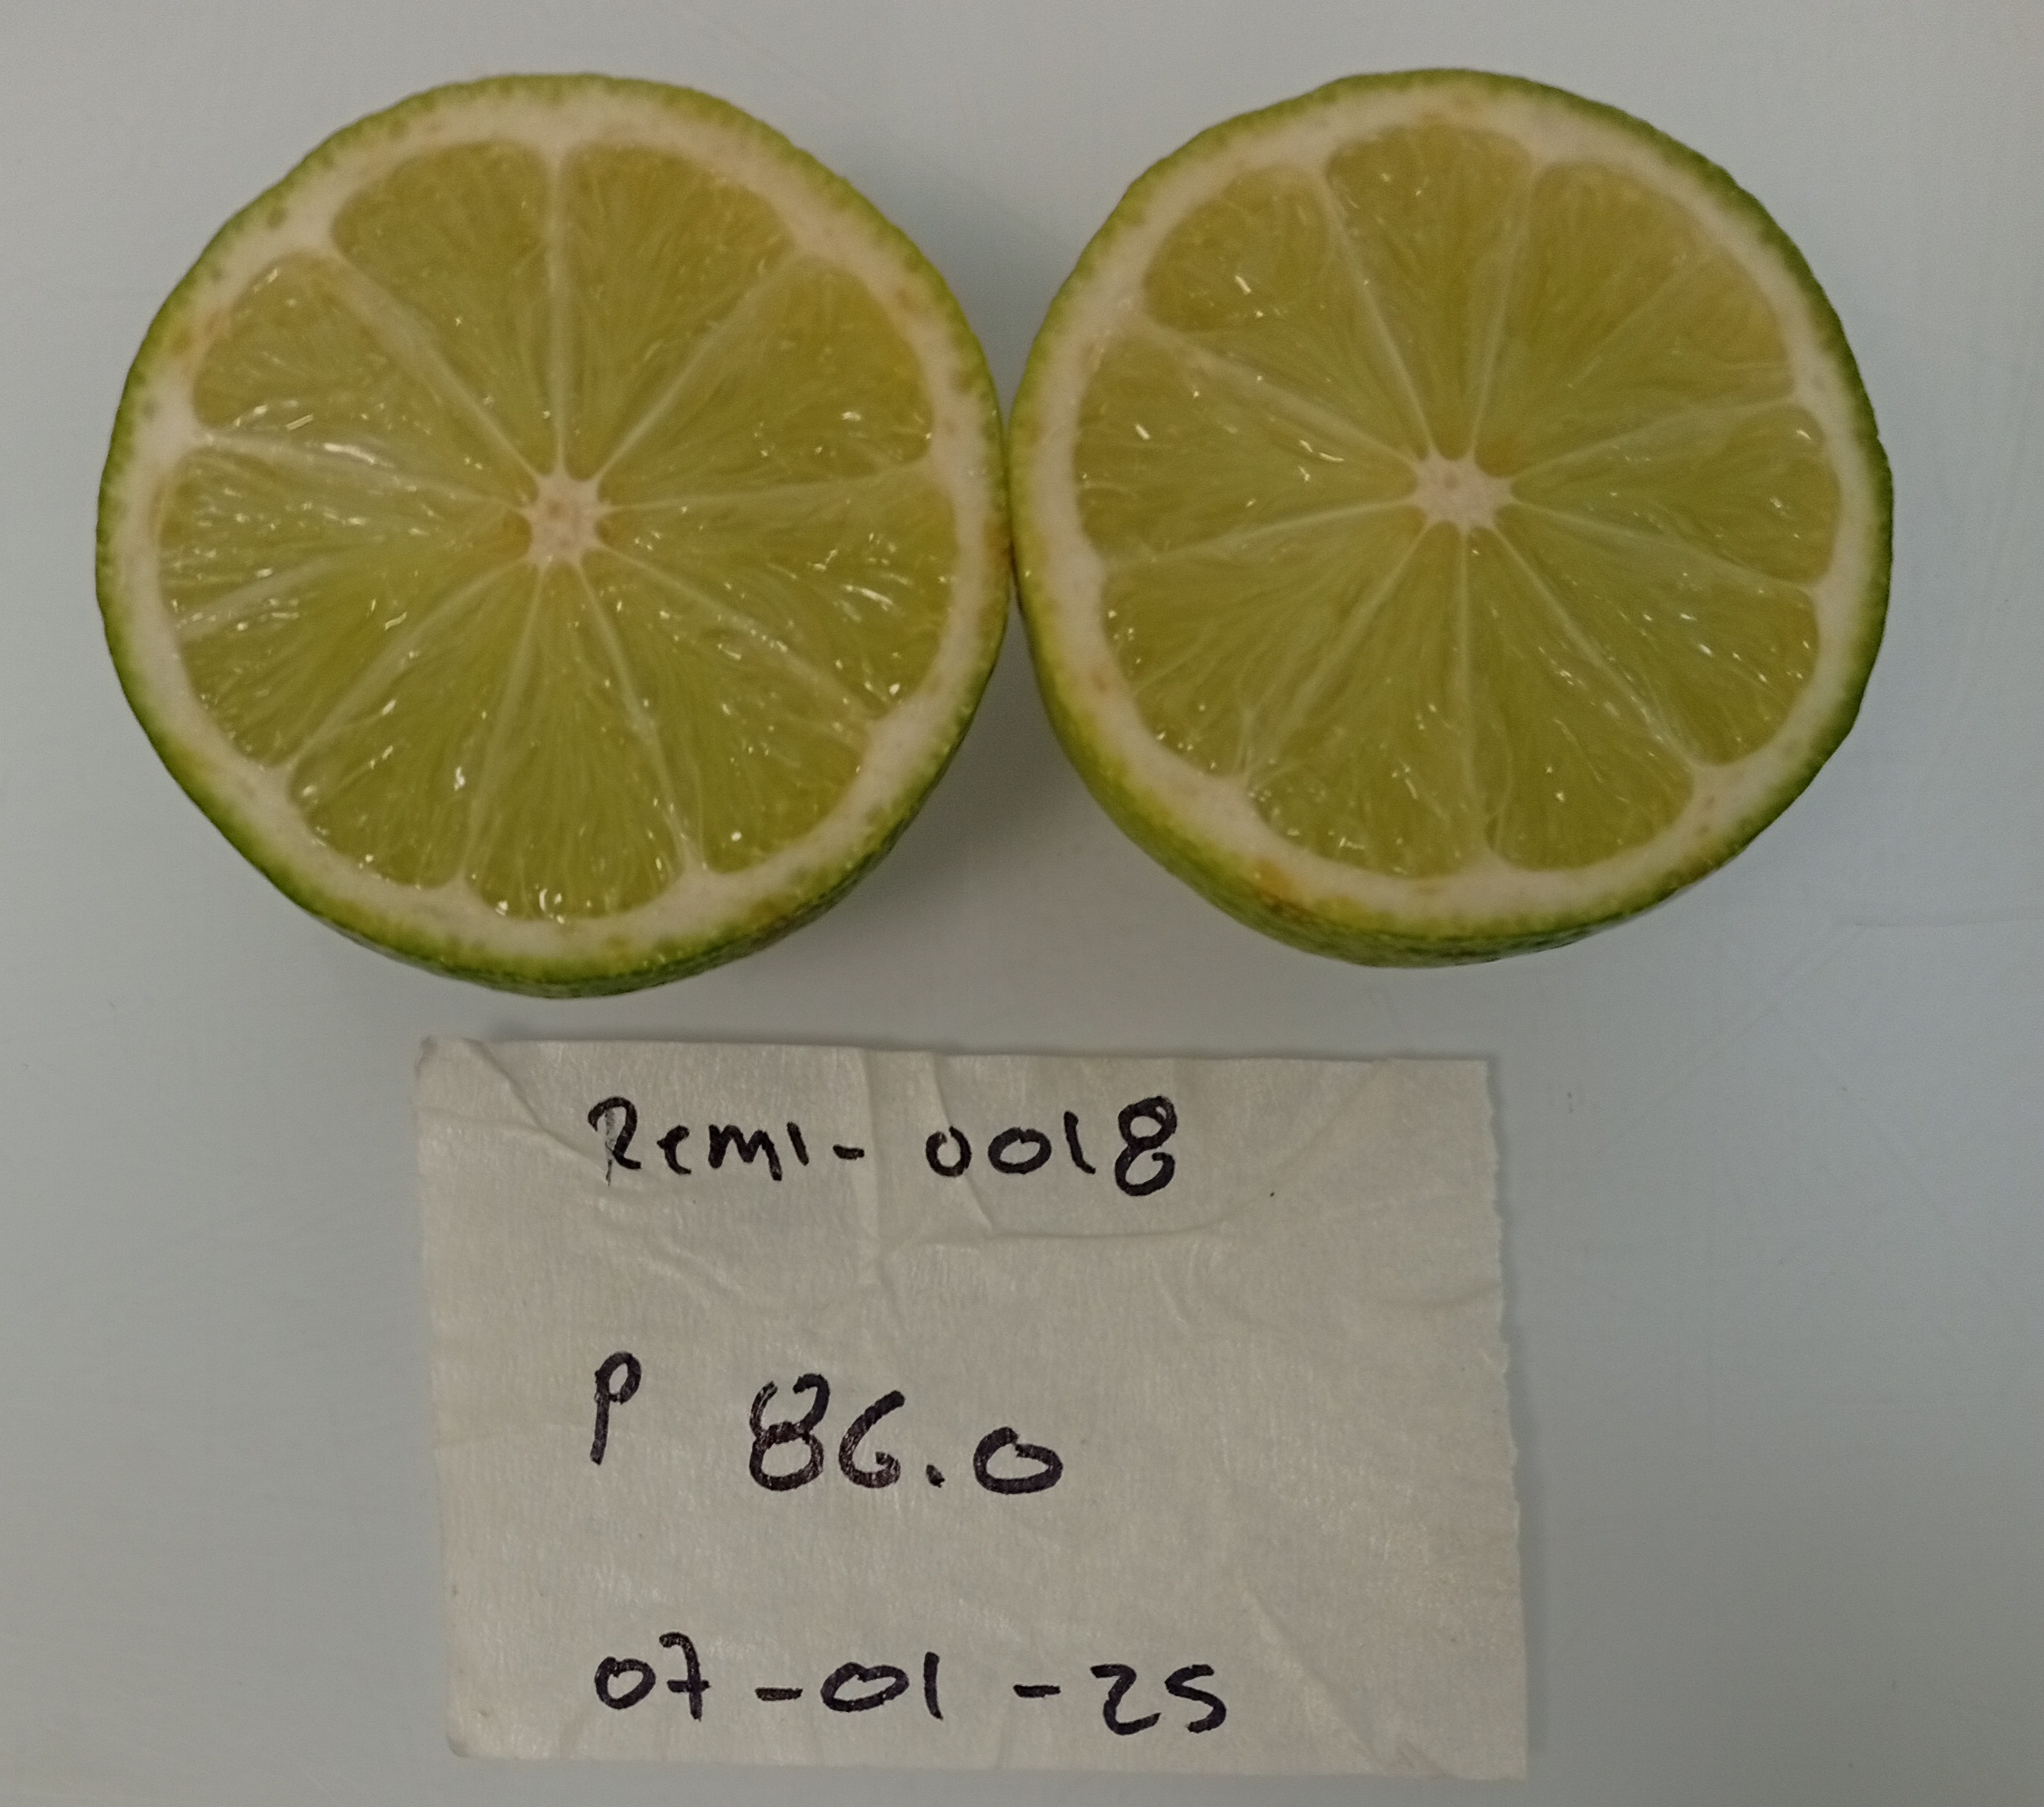 Remi-0018
P 86.0
07-01-25